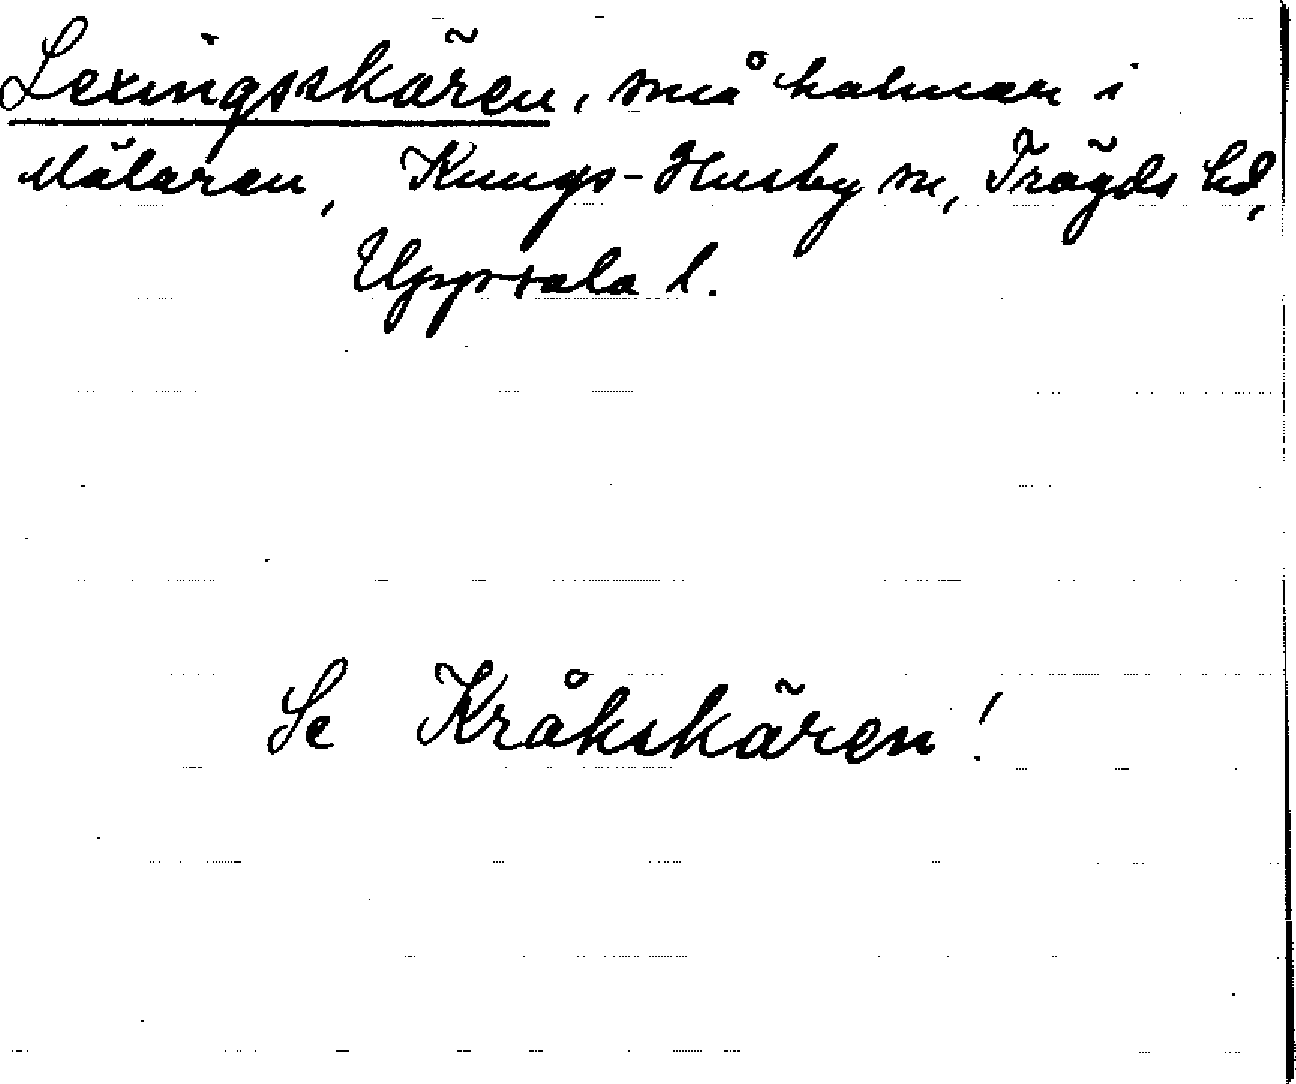 Lexingsskären, små holmar i
Mälaren, Kungs-Husby sn, Trögds hd,
Uppsala l.
Se Kråkskären!